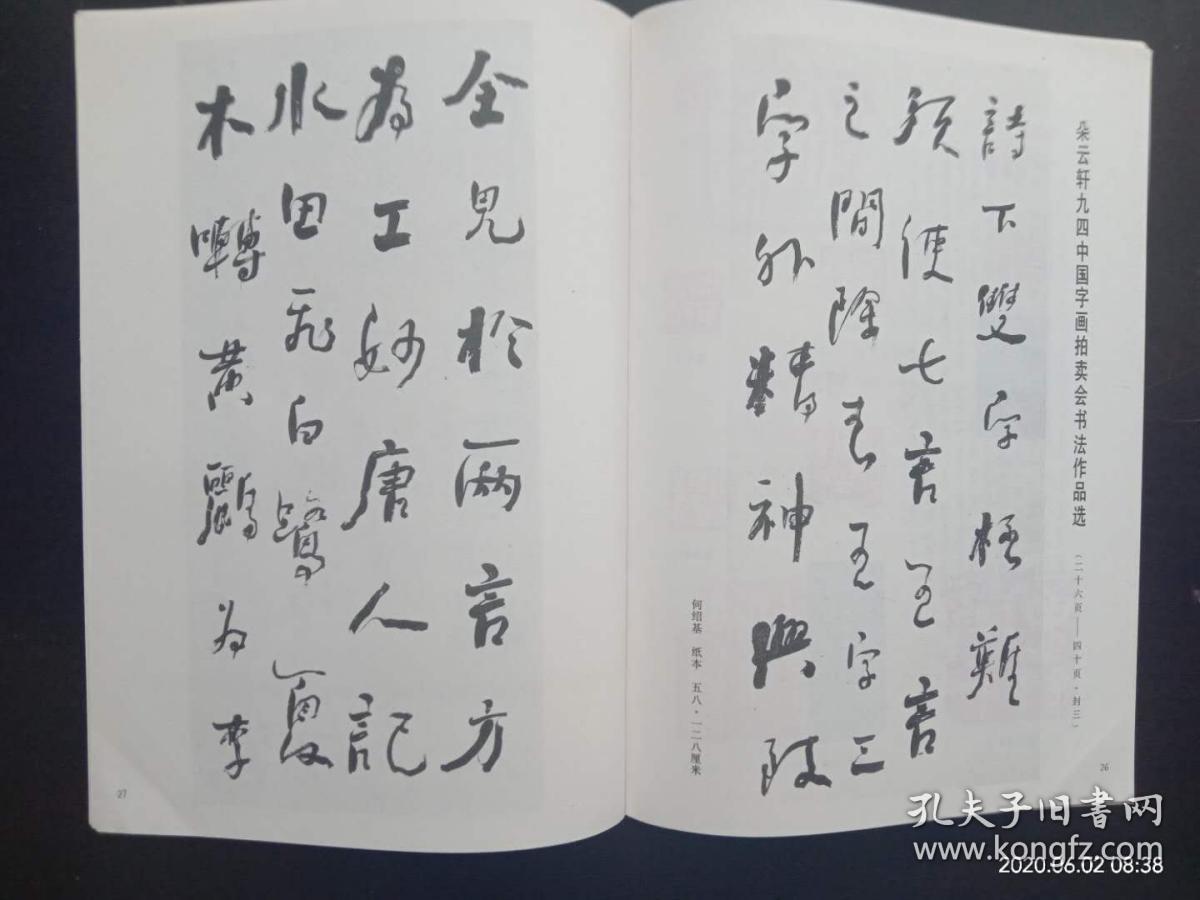 朵云轩九四中国字画拍卖会书法作品选
（二十六页——四十页·封三）
詩下雙字極難
須使七言五言
之間除去五字三
字外精神興致
何绍基 纸本 五八·一二八厘米
26
全見於兩言方
為工妙唐人記
水田飛白鷺夏
木囀黃鸝為李
27
孔夫子旧書网
www.kongfz.com
2020.06.02 08:38